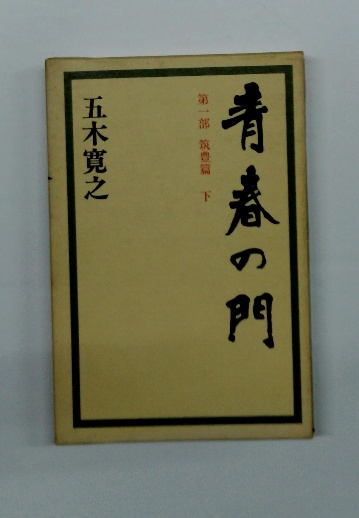 青春の門
第一部 筑豊篇 下
五木寛之